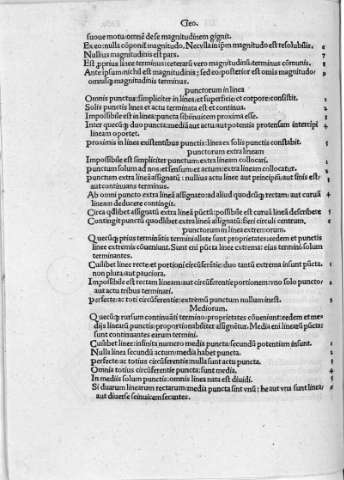 Geo.
suoue motu: omni dese magnitudinem gignit.
Ex eo: nulla cōponit̄ magnitudo. Nec vlla in ipm magnitudo est resolubilis. 6
Nullius magnitudinis est pars. 7
Est prius linee terminus: ceterarū vero magnitudinū terminus cōmunis. 8
Ante ipsum nichil est magnitudinis: sed eo: posterior est omnis magnitudo:
omnisq̨ magnitudinis terminus.
punctorum in linea
Omnis punctus: simpliciter in linea: et superficie: et corpore consistit. 1
Solis punctis linee et actu terminata est et continua. 2
Impossibile est in linea: puncta sibiinuicem proxima esse. 3
Inter quecūq̨ duo puncta: media aut actu aut potentia protensam intercipi
lineam oportet. 4
proximis in linea existentibus punctis: linea ex solis punctis constabit. 5
punctorum extra lineam
Impossibile est simpliciter punctum: extra lineam collocari. 1
punctum solum ad nos et sensum: et actum: extra lineam collocatur. 2
punctum extra lineā assignatū: nullius actu linee aut principiū aut finis est:
aut continuans terminus. 3
Ab omni puncto extra lineā assignato: ad aliud quodcūq̨: rectam aut curuā
lineam deducere contingit. 4
Circa qdlibet assignatū extra lineā pūctū: possibile est curuā lineā describere 5
Contingit quodlibet punctū extra lineā assignatū: fieri circuli centrum. 6
punctorum in linea extremorum.
Quecūq̨ prius terminātis termini: lōne sunt proprietates: eedem et punctis
linee extremis cōueniunt. Sunt eni pūcta linee extrema: eius termini solum
terminantes.
Cuilibet linee recte: et portioni circūferētie: duo tantū extrema insunt pūcta.
non plura aut pauciora. 1
Impossibile est rectam lineam: aut circūferentie portionem: vno solo puncto:
aut actu tribus terminari. 2
perfecte: ac toti circūferētie: extremū punctum nullum inest. 3
Mediorum.
Quecūq̨ rursum continuāti termino: proprietates cōueniunt: eedem et me-
dijs linearū punctis proportionabiliter assignētur. Media eni lineaꝝ pūcta:
sunt continuantes earum termini.
Cuilibet linee: infinita numero media puncta: secundū potentiam insunt. 1
Nulla linea secundū actum: media habet puncta. 2
perfecte ac totius circūferētie nulla sunt actu puncta. 3
Omnis totius circūferētie puncta: sunt media. 4
In medijs solum punctis: omnis linea nata est diuidi. 5
Si duarum linearum rectarum media puncta sint vnū: he aut vna sunt linea:
aut diuerse seinuicem secantes. 6